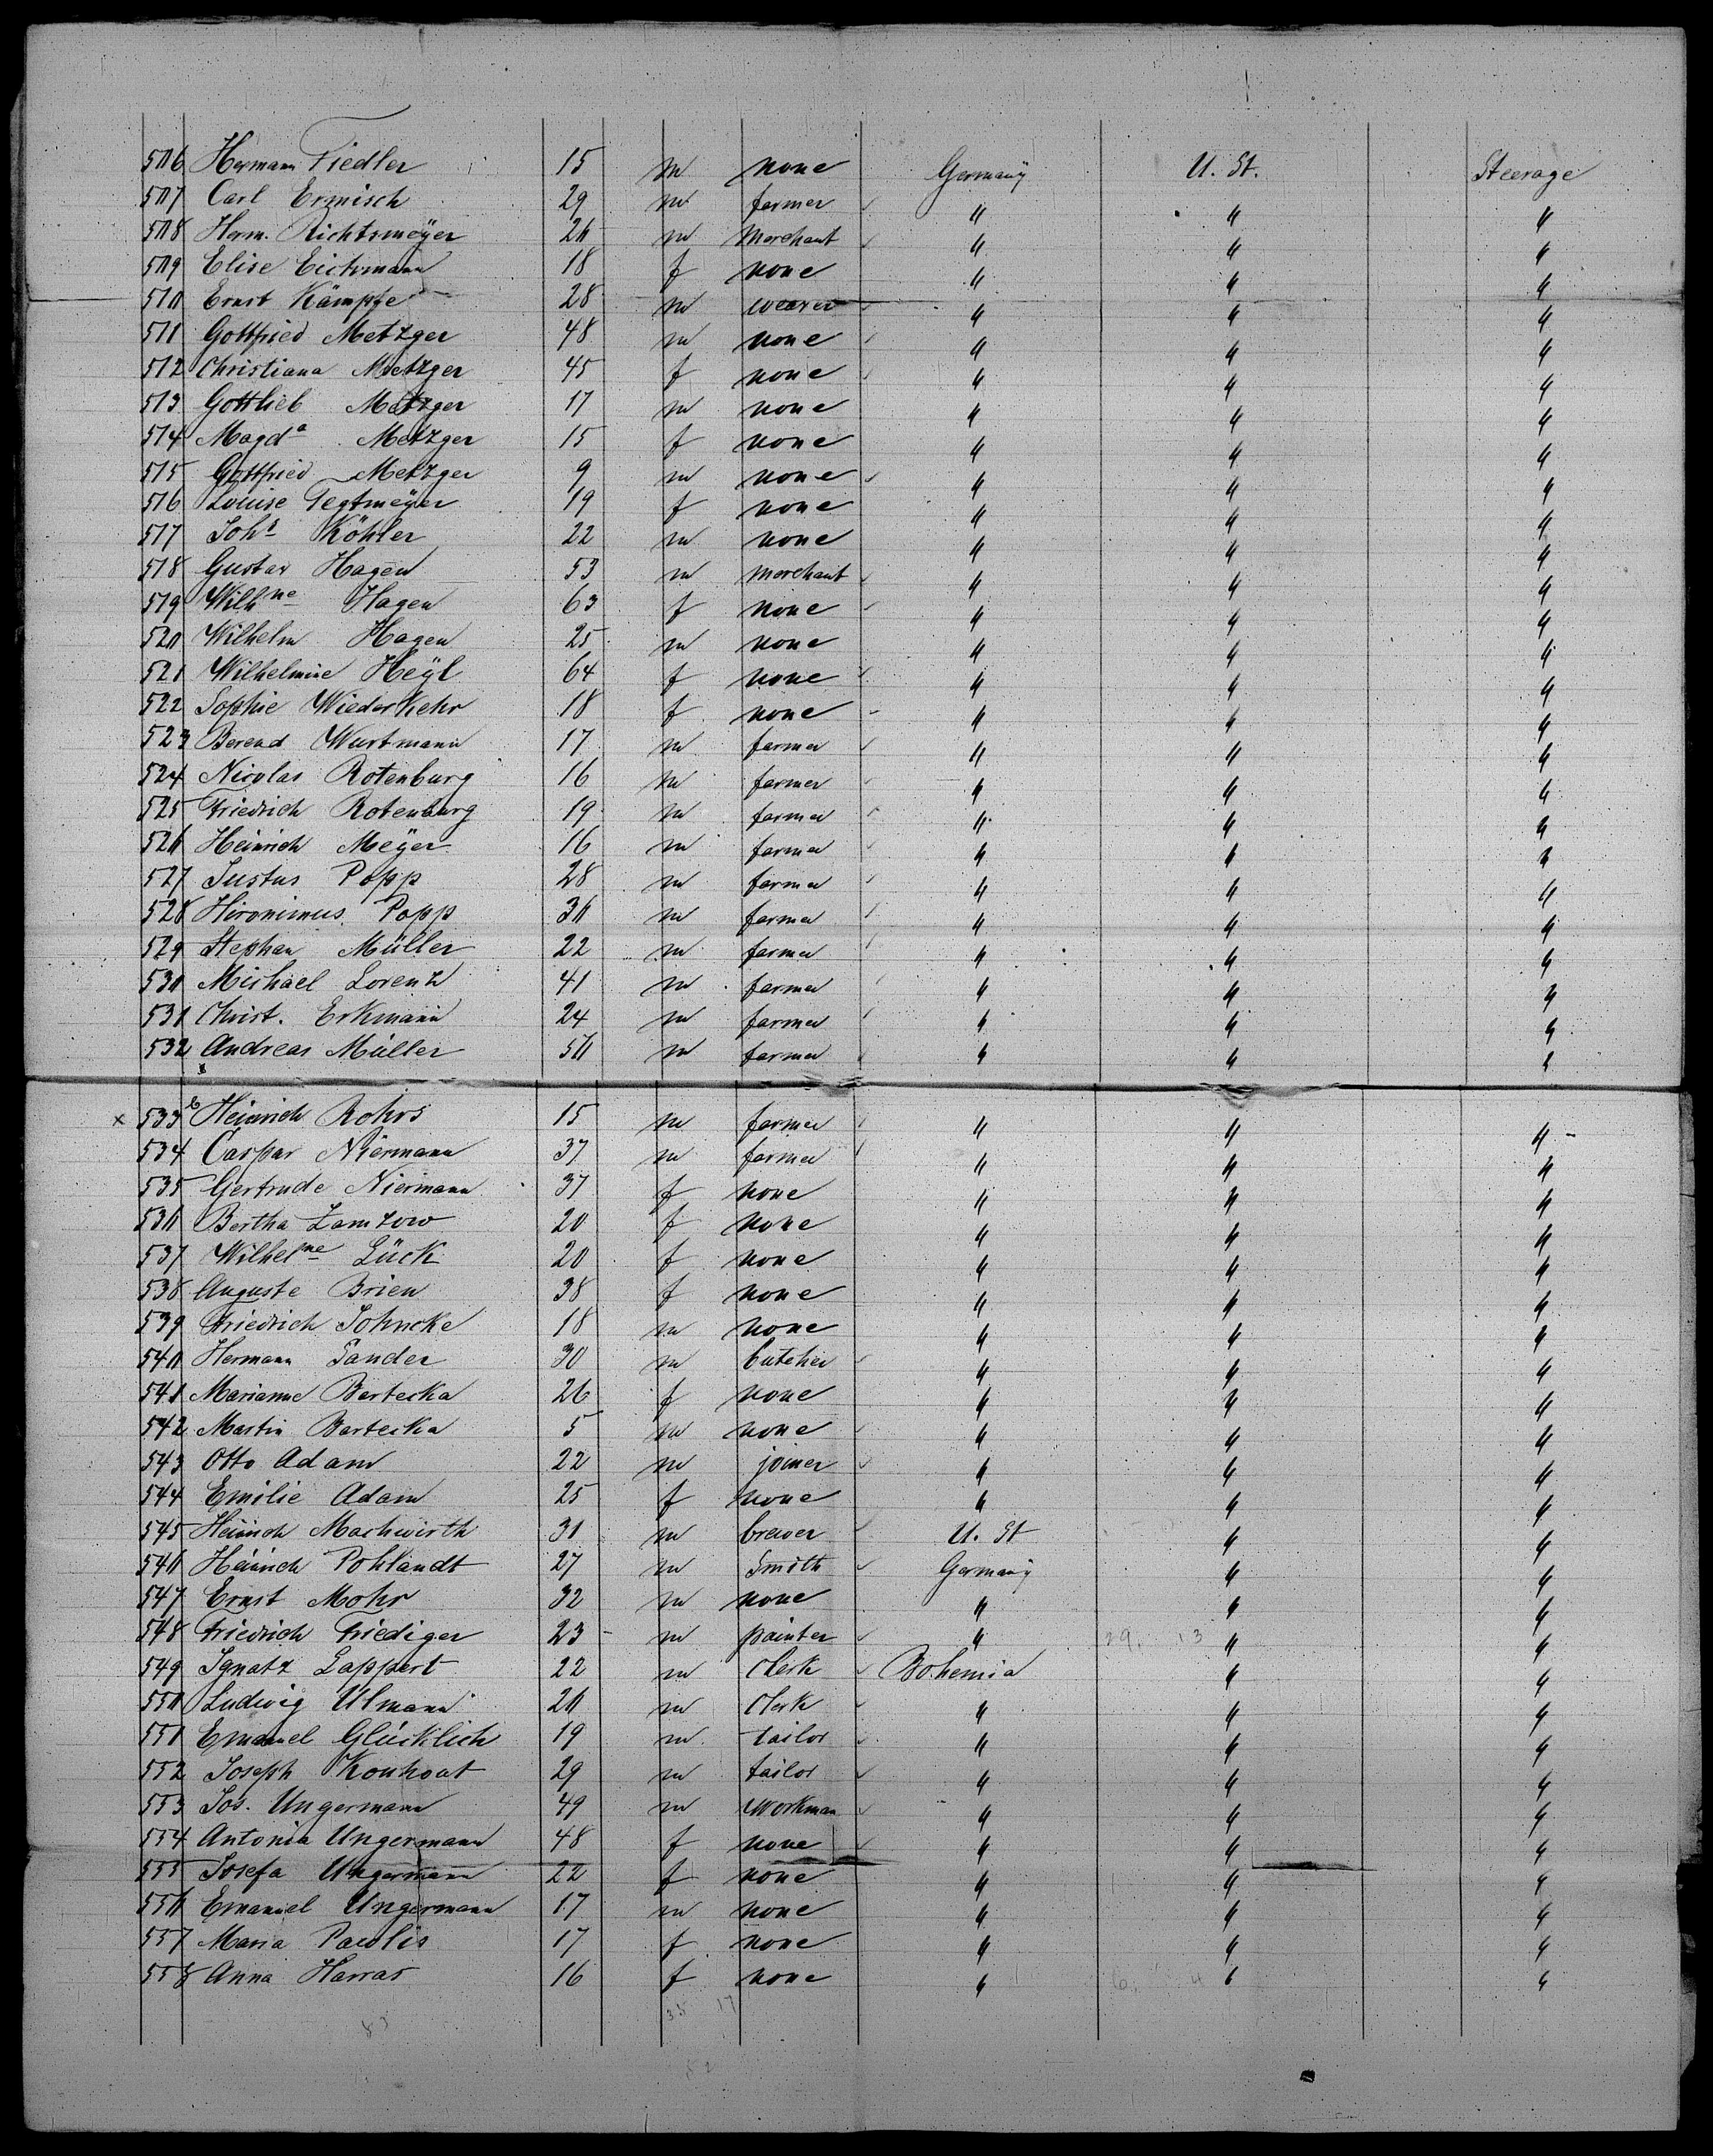 506 Hermann Fiedler 15 m none Germany U. St. Steerage
507 Carl Ermisch 29 m farmer " " "
508 Herm. Richtsmeÿer 20 m Merchant " " "
509 Elise Eichmann 18 f none " " "
510 Ernst Kämpfe 28 m weaver " " "
511 Gottfried Metzger 48 m none " " "
512 Christiana Metzger 45 f none " " "
513 Gottlieb Metzger 17 m none " " "
514 Magda Metzger 15 f none " " "
515 Gottfried Metzger 9 m none " " "
516 Louise Tegtmeÿer 19 f none " " "
517 Johs Köhler 22 m none " " "
518 Gustav Hagen 53 m Merchant " " "
519 Wilhne Hagen 63 f none " " "
520 Wilhelm Hagen 25 m none " " "
521 Wilhelmine Heÿl 64 f none " " "
522 Sophie Wiederkehr 18 f none " " "
523 Berend Wurtmann 17 m farmer " " "
524 Nicolas Rotenburg 16 m farmer " " "
525 Friedrich Rotenburg 19 m farmer " " "
526 Heinrich Meÿer 16 m farmer " " "
527 Justus Popp 28 m farmer " " "
528 Hironimus Popp 30 m farmer " " "
529 Stephan Müller 22 m farmer " " "
530 Michael Lorenz 41 m farmer " " "
531 Christ. Erkmann 24 m farmer " " "
532 Andreas Müller 50 m farmer " " "
x 533 Heinrich Rohrs 15 m farmer " " "
534 Caspar Niermann 37 m farmer " " "
535 Gertrude Niermann 37 f none " " "
536 Bertha Zamzow 20 f none " " "
537 Wilhelme Lück 20 f none " " "
538 Auguste Brien 38 f none " " "
539 Friedrich Johncke 18 m none " " "
540 Hermann Sander 30 m butcher " " "
541 Marianne Bartecka 26 f none " " "
542 Martin Bartecka 5 m none " " "
543 Otto Adam 22 m joiner " " "
544 Emilie Adam 25 f none " " "
545 Heinrich Machwirth 31 m brewer U. St " "
546 Heinrich Pohlandt 27 m Smith Germany " "
547 Ernst Mohr 32 m none " " "
548 Friedrich Friediger 23 m painter " 29. 13 " "
549 Ignatz Lappert 22 m Clerk Bohemia " "
550 Ludwig Ulmann 20 m Clerk " " "
551 Emanuel Glücklich 19 m tailor " " "
552 Joseph Kouhout 29 m tailor " " "
553 Jos. Ungermann 49 m Workman " " "
554 Antonia Ungermann 48 f none " " "
555 Josefa Ungermann 22 f none " " "
556 Emanuel Ungermann 17 m none " " "
557 Maria Pawlis 17 f none " " "
558 Anna Harras 16 f none " 6. 4 " "
35 17